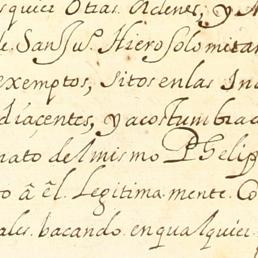 squier Otras Ordenes, y M
de San Ju.º Hierosolimitan
exemptos, sitos en las In
diacentes, y acostumbrad
nato del mismo Phelip
o â el Legitima mente. Co
ales. bacando en qualquier